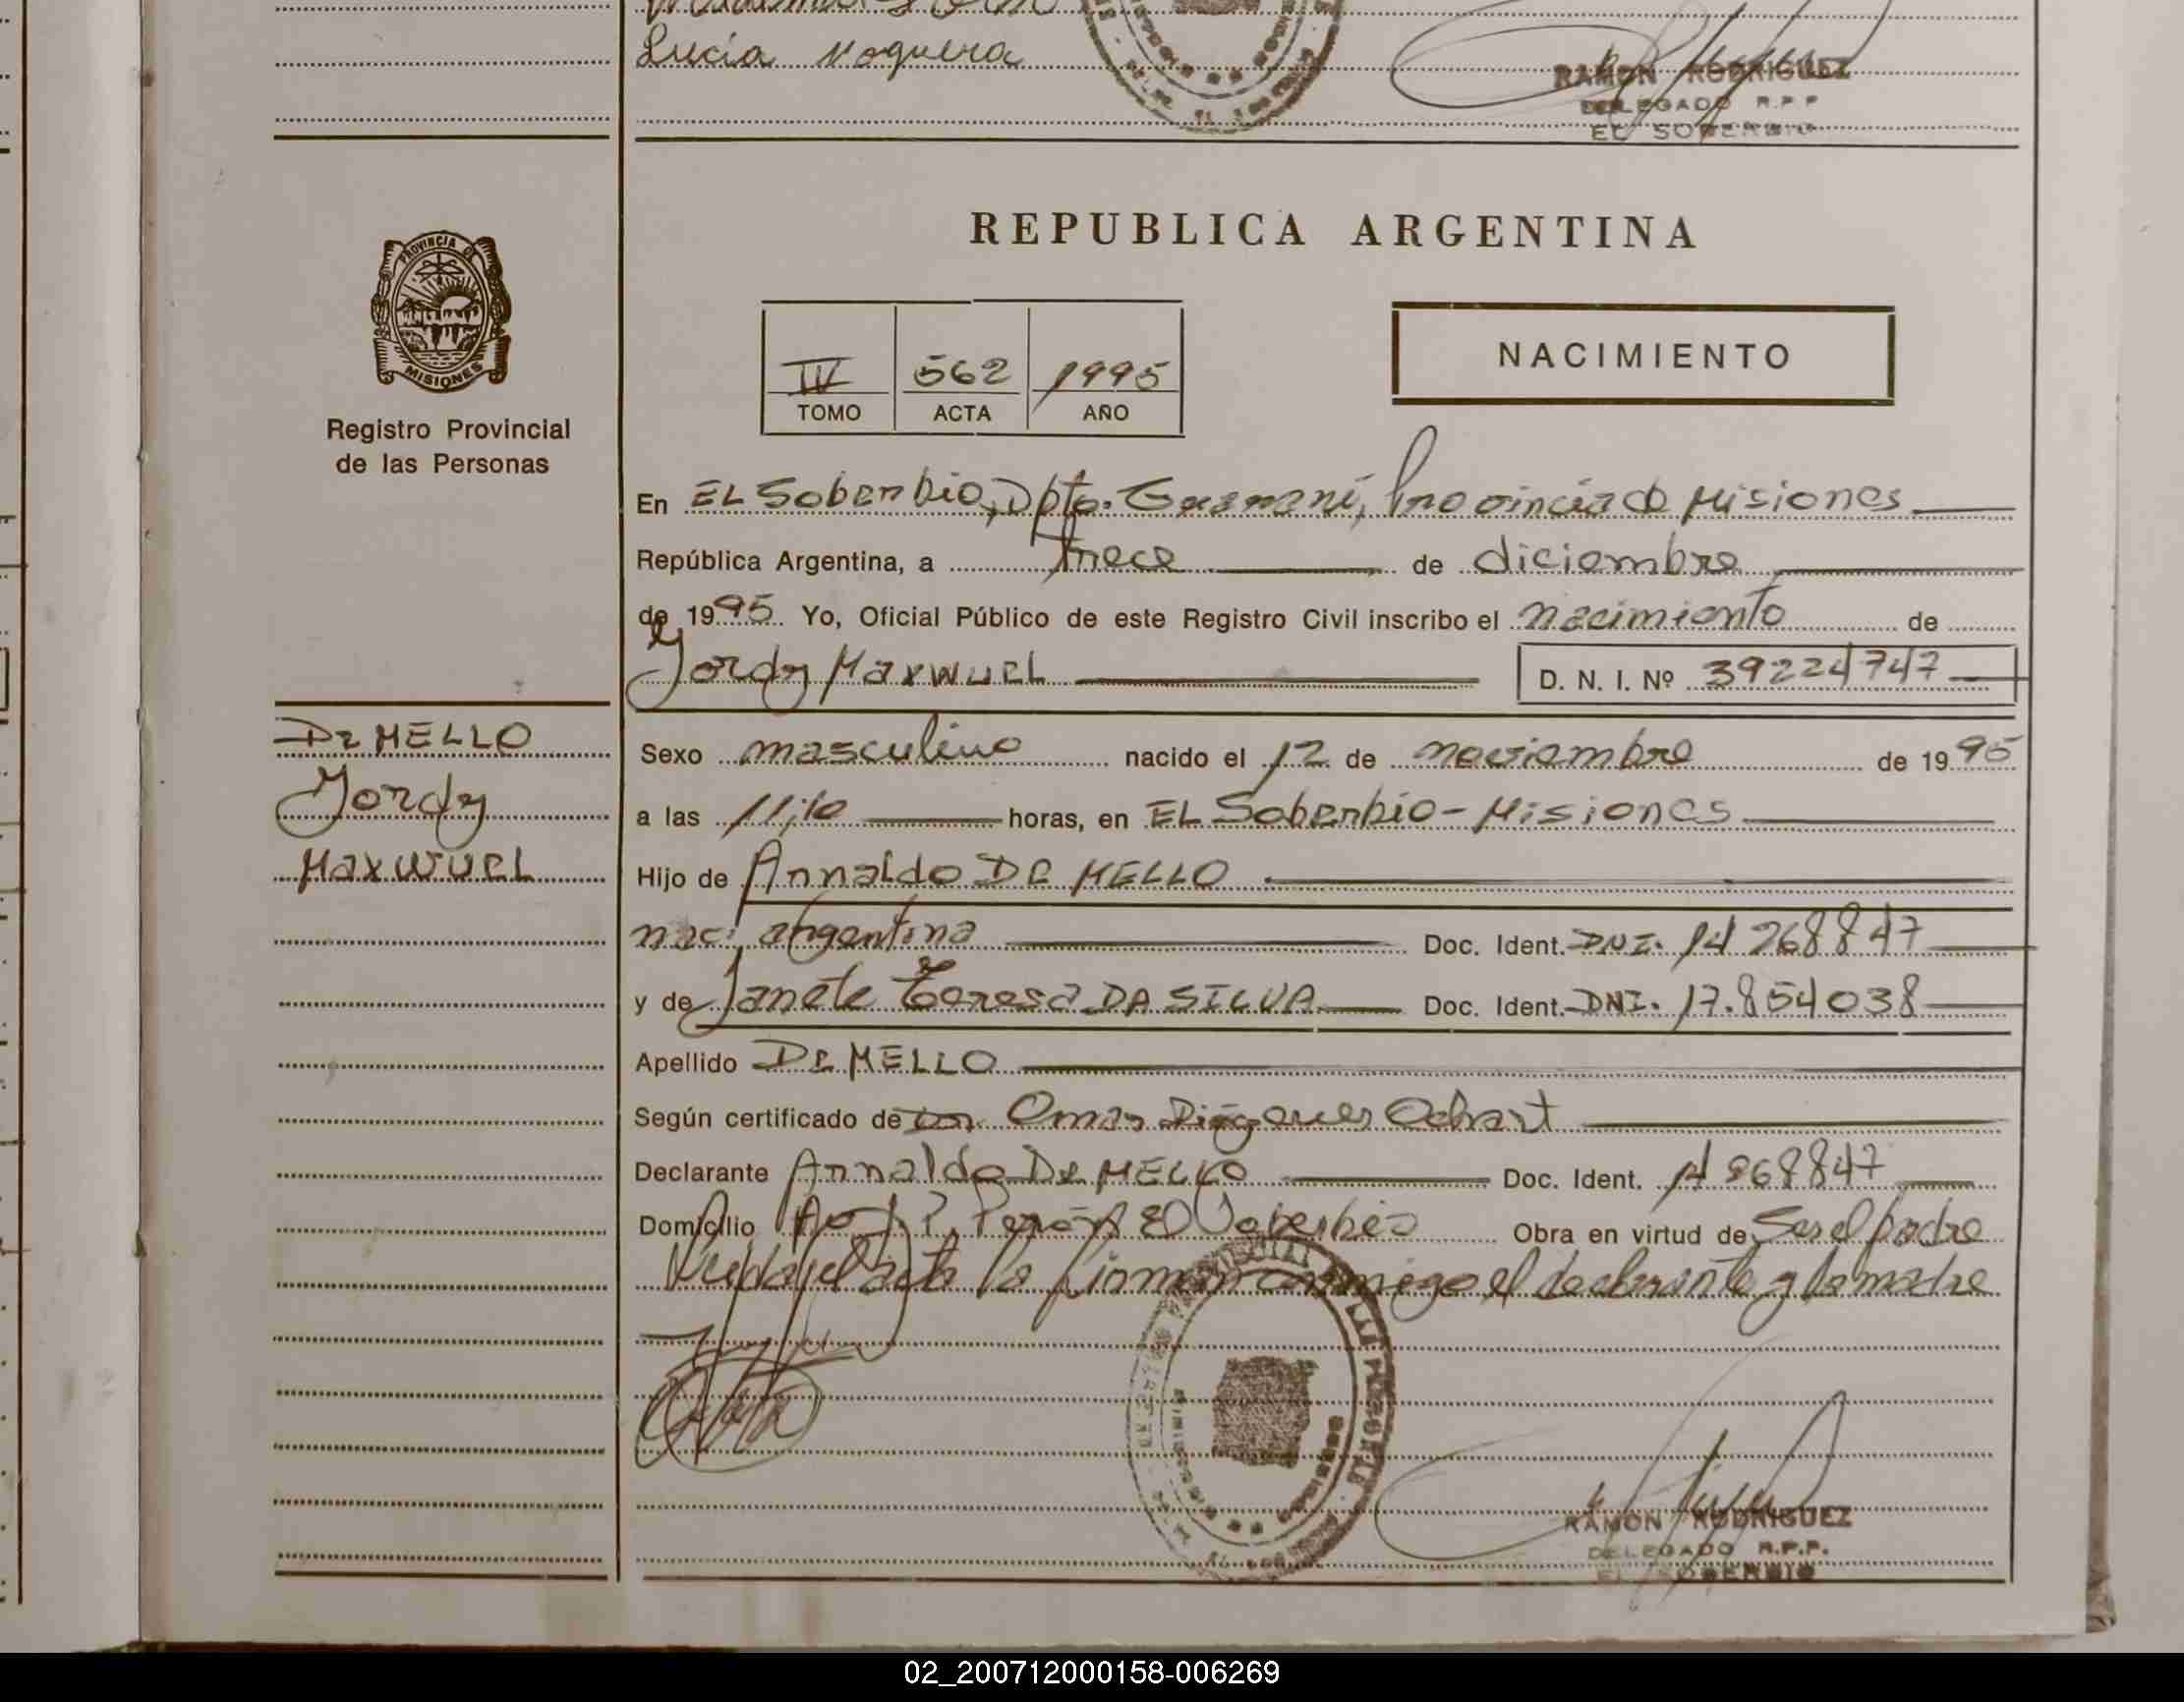 Lucía Noguera
RAMON RODRIGUEZ
DELEGADO R.P.P
EL SOBERBIO
REPUBLICA ARGENTINA
PROVINCIA DE
MISIONES
Registro Provincial
de las Personas
IV 562 1995
TOMO ACTA AÑO
NACIMIENTO
En EL Soberbio, Dpto. Guaraní, Provincia de Misiones
República Argentina, a Trece de diciembre
de 1995. Yo, Oficial Público de este Registro Civil inscribo el nacimiento de
Yordy Maxwuel
D. N. I. Nº 39224747
DE MELLO
Yordy
Maxwuel
Sexo masculino nacido el 12 de noviembre de 1995
a las 11,10 horas, en EL Soberbio - Misiones
Hijo de Arnaldo DE MELLO
nac. argentina Doc. Ident. DNI. 14 268847
y de Janete Teresa DA SILVA Doc. Ident. DNI. 17.854038
Apellido DE MELLO
Según certificado de Omar Diógenes Ochart
Declarante Arnaldo De MELLO Doc. Ident. 14 268847
Domicilio Av. J. P. Perón El Soberbio Obra en virtud de Ser el padre
el acta la firman conmigo el declarante y la madre
RAMON RODRIGUEZ
DELEGADO R.P.P.
EL SOBERBIO
02_200712000158-006269